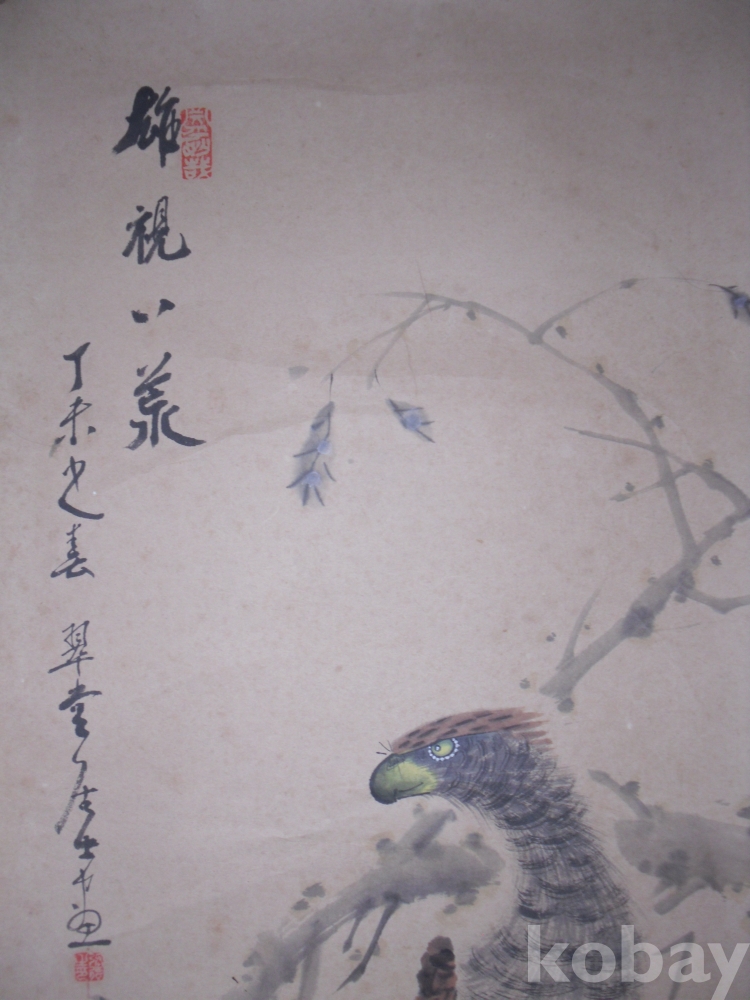 雄視八荒
丁未之春 翠堂居士畫
kobay